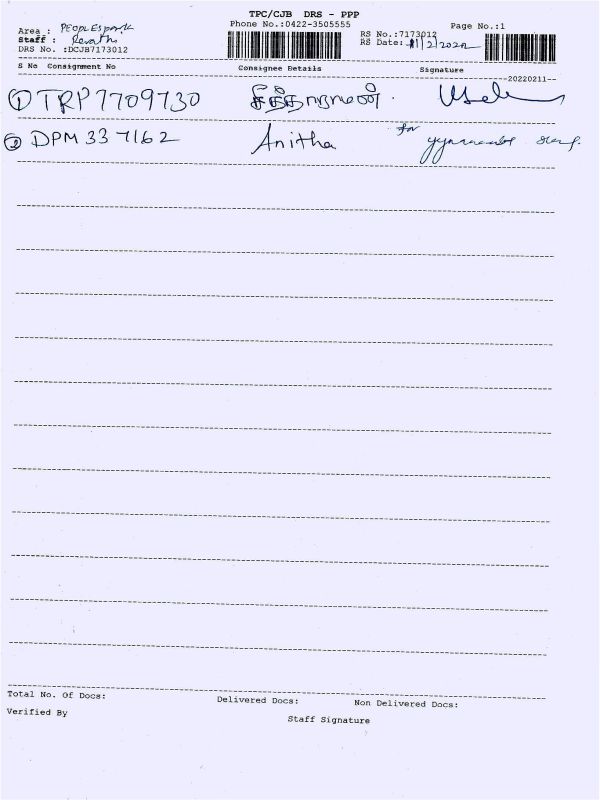 TPC/CJB DRS - PPP
Phone No.:0422-3505555
Page No.:1
Area : PEOPLESpark
Staff : Revathi
DRS No. :DCJB7173012
RS No.:7173012
RS Date: 11/2/2022
S No Consignment No Consignee Details Signature
--20220211--
① TRP7709730
② DPM 337162 Anitha for
Total No. Of Docs: Delivered Docs: Non Delivered Docs:
Verified By Staff Signature